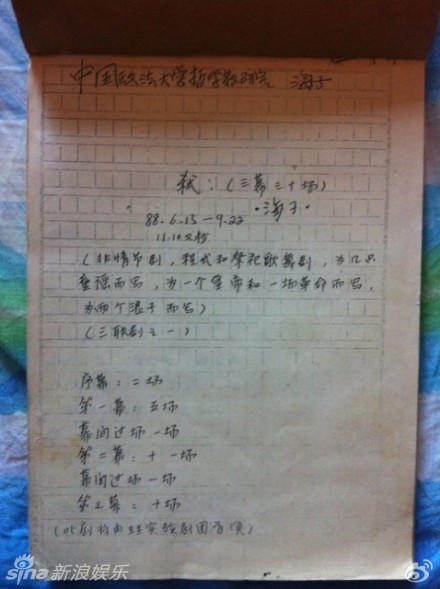 中国政法大学哲学教研室 海子
弑:(三幕三十场)
·海子·
88.6.13—9.22
11.10
(非情节剧,程式和祭祀歌舞剧,为几只
童谣而写,为一个皇帝和一场革命而写,
为两个浪子而写)
(三联剧之一)
序幕:二场
第一幕:五场
幕间过场一场
第二幕:十一场
幕间过场一场
第三幕:十场
(此剧将由实验剧团首演)
sina新浪娱乐